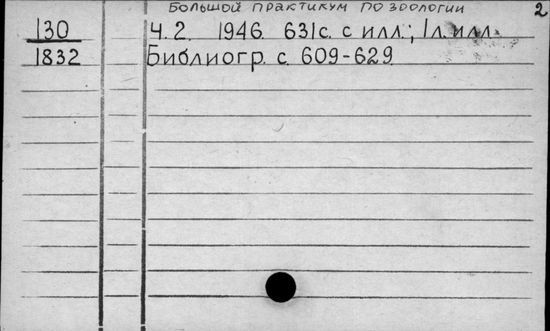 Большой практикум по зоологии
2
130 Ч. 2. 1946. 631с. с илл.; 1л. илл.
1832 Библиогр. с. 609-629